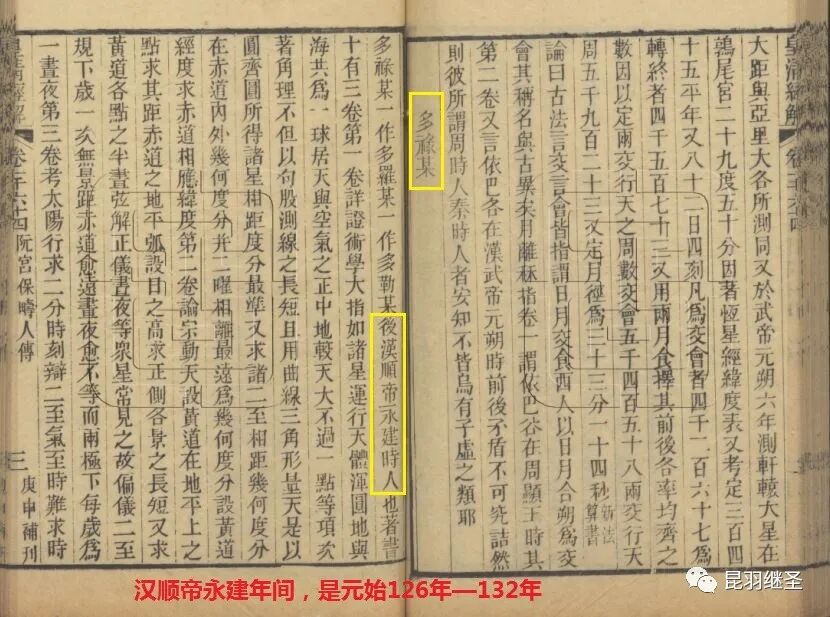 皇清經解
大距與亞里大各所測同又於武帝元朔六年測軒轅大星在
鶉尾宮二十九度五十分因著恆星經緯度表又考定三百四
十五平年又八十二日四刻凡爲交會者四千二百六十七爲
轉終者四千五百七十三又用兩月食擇其前後各率均齊之
數因以定兩交行天之周數交會五千四百五十八兩交行天
周五千九百二十三又定月徑爲三十三分一十四秒新法算書
論曰古法言交言會皆指謂日月交食西人以日月合朔爲交
會其稱名與古異矣月離秝指卷一謂依巴谷在周顯王時其
第二卷又言依巴谷在漢武帝元朔時前後矛盾不可究詰然
則彼所謂周時人秦時人者安知不皆烏有子虛之類耶
多祿某
多祿某一作多羅某一作多勒某後漢順帝永建時人也著書
十有三卷第一卷詳證術學大指如諸星運行天體渾圓地與
海共爲一球居天與空氣之正中地較天大不過一點等項次
著角理不但以句股測線之長短且用曲線三角形量天是以
圓齊圓所得諸星相距度分最準又求諸二至相距幾何度分
在赤道內外幾何度分并二曜相離最遠爲幾何度分設黃道
經度求赤道相應緯度第二卷論宗動天設黃道在地平上之
點求其距赤道之地平弧設日之高求正側各景之長短又求
黃道各點之半晝弦解正儀晝夜等衆星常見之故偏儀二至
規下歲一次無景距赤道愈遠晝夜愈不等而兩極下每歲爲
一晝夜第三卷考太陽行求二分時刻辯二至氣至時難求時
皇清經解 卷一千六十四 阮宮保疇人傳 三 庚申補刊
汉顺帝永建年间，是元始126年—132年
昆羽继圣